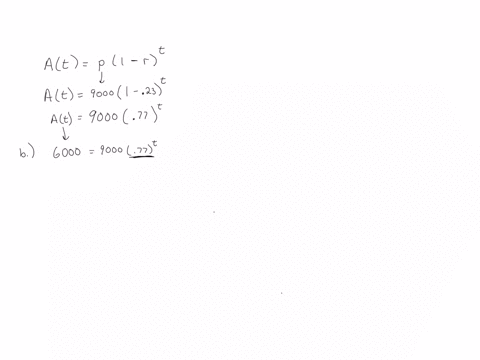 A(t) = p(1 - r)^t
A(t) = 9000(1 - .23)^t
A(t) = 9000(.77)^t
b.) 6000 = 9000(.77)^t